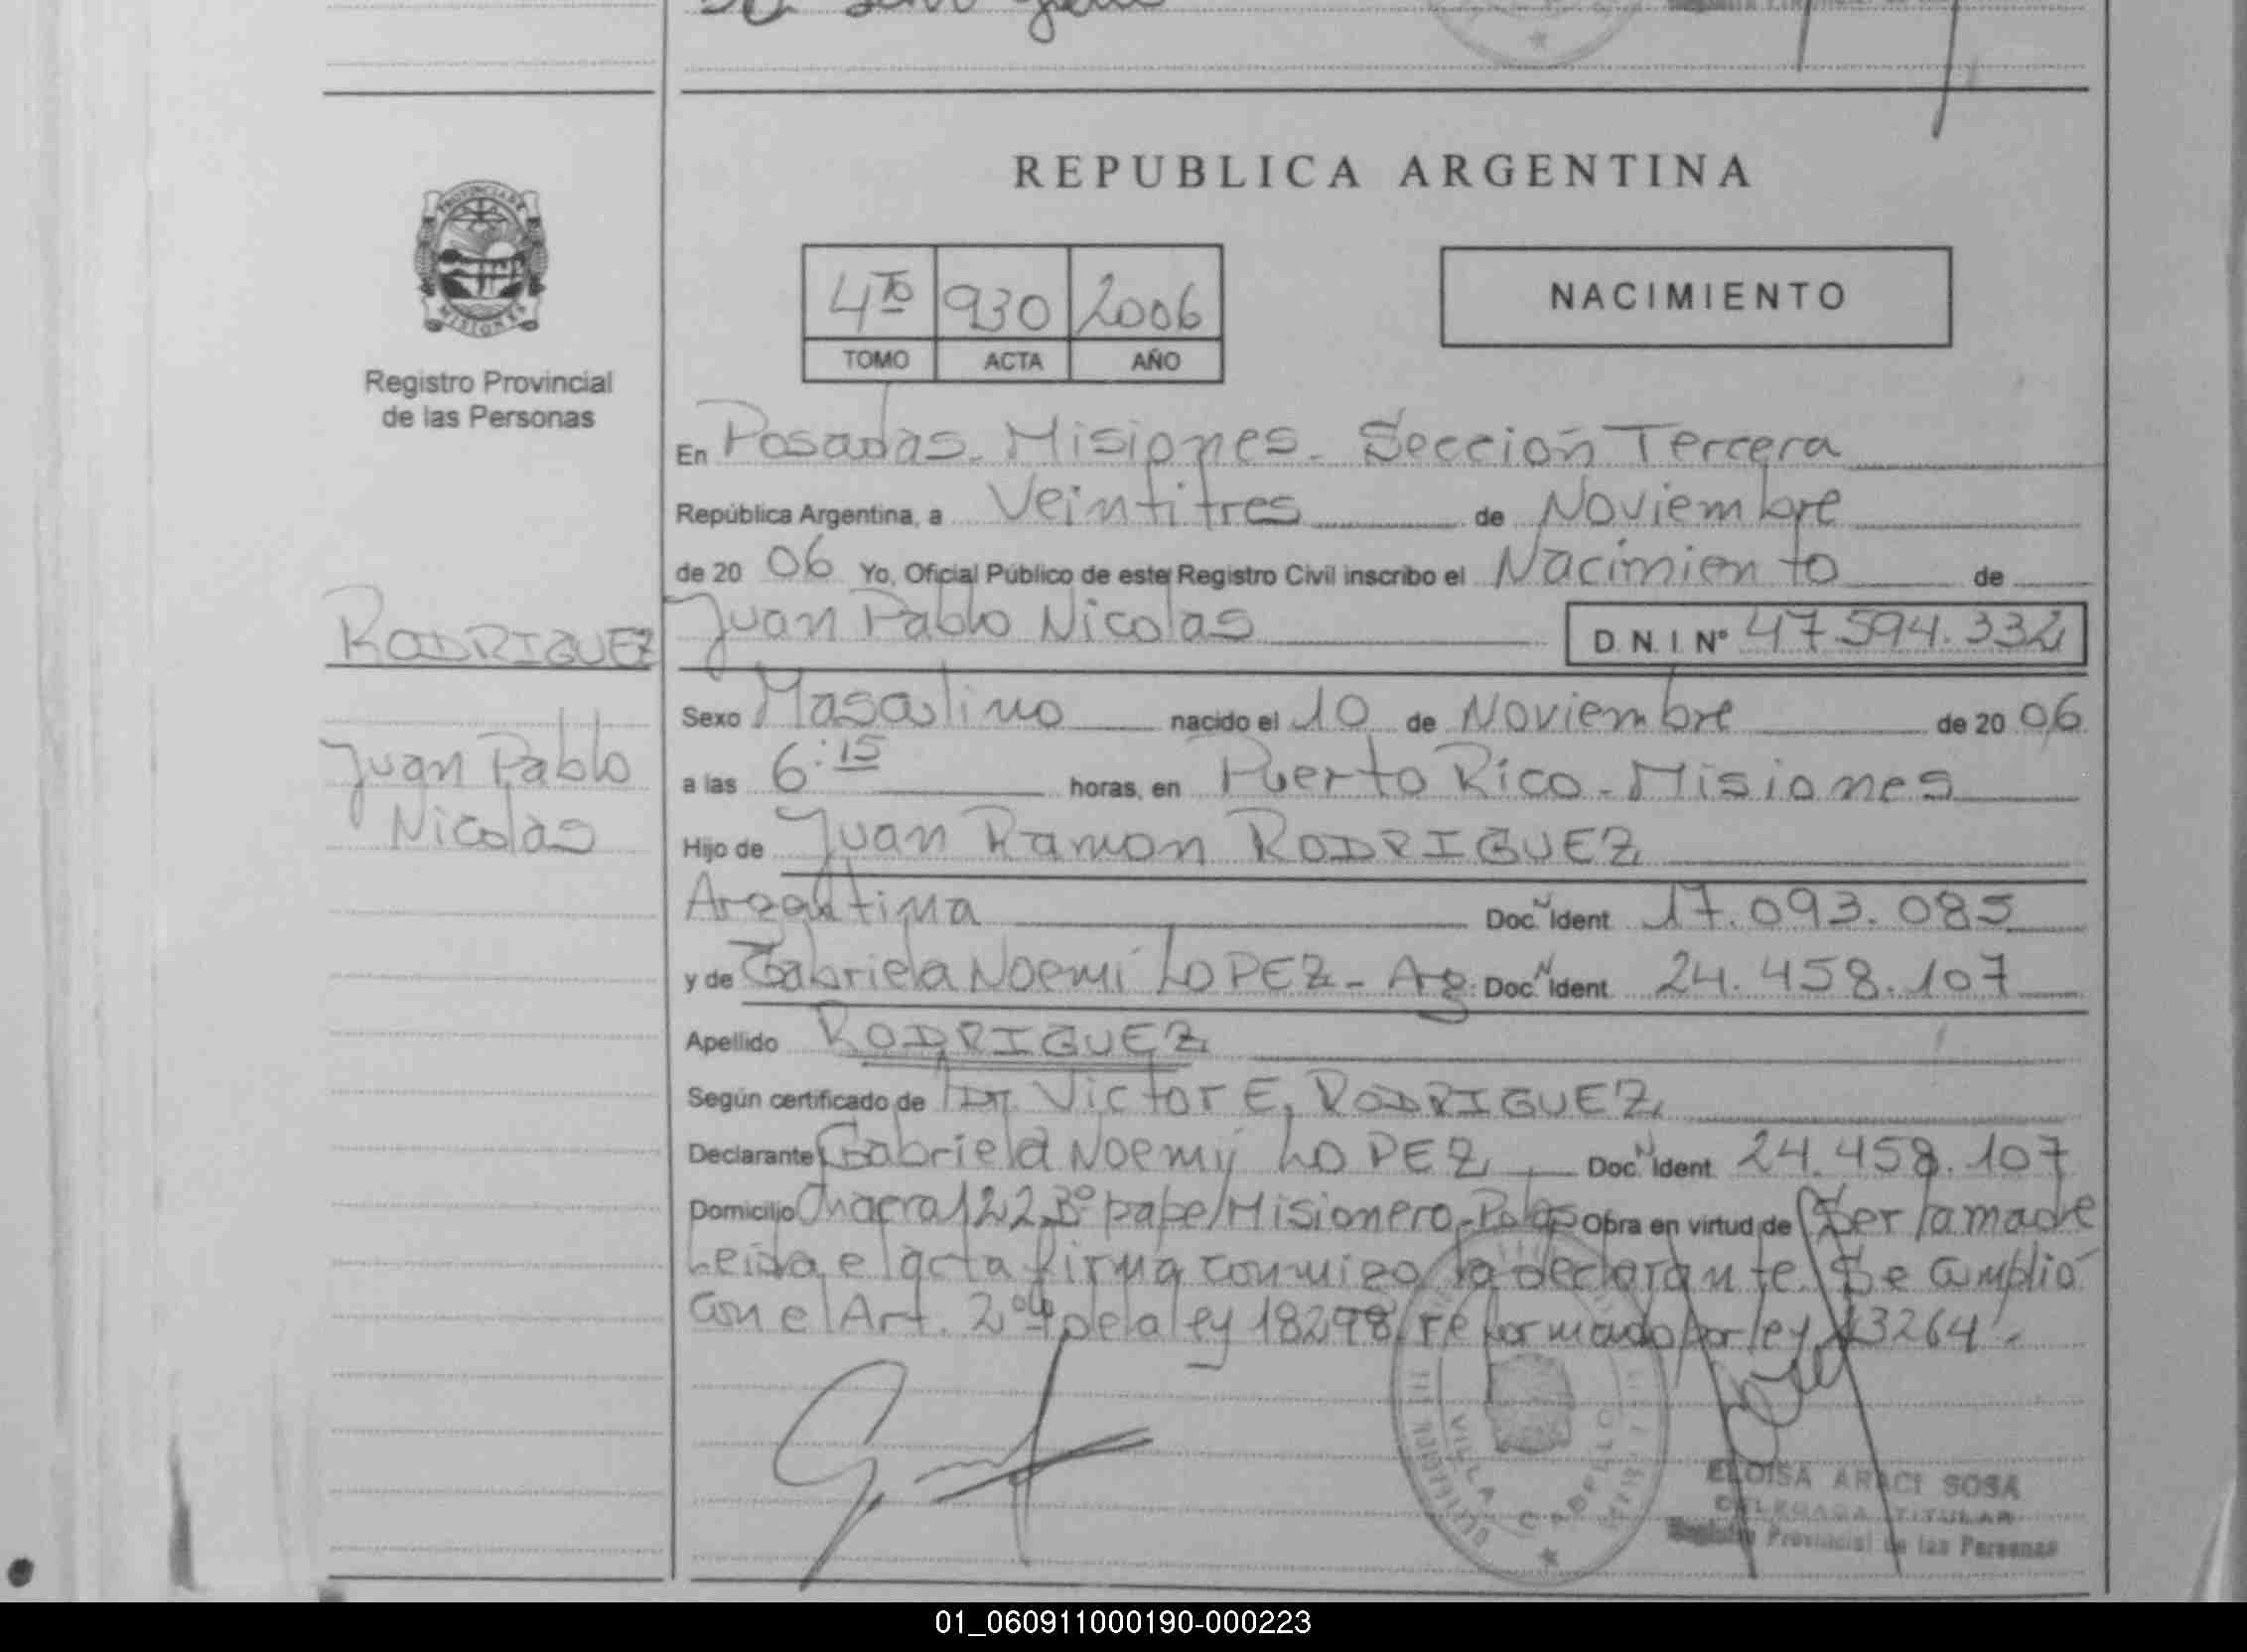 REPUBLICA ARGENTINA
PROVINCIA DE
MISIONES
Registro Provincial
de las Personas
4to 930 2006
TOMO ACTA AÑO
NACIMIENTO
En Posadas. Misiones. Sección Tercera
República Argentina, a Veintitres de Noviembre
de 20 06 Yo, Oficial Público de este Registro Civil inscribo el Nacimiento de
Juan Pablo Nicolas D.N.I. Nº 47.594.332
RODRIGUEZ
Juan Pablo
Nicolas
Sexo Masculino nacido el 10 de Noviembre de 20 06
a las 6:15 horas, en Puerto Rico - Misiones
Hijo de Juan Ramon RODRIGUEZ
Argentina Doc. N Ident 17.093.085
y de Gabriela Noemi LOPEZ - Arg. Doc. N Ident 24.458.107
Apellido RODRIGUEZ
Según certificado de Dr. Victor E, RODRIGUEZ
Declarante Gabriela Noemi LOPEZ Doc. N Ident. 24.458.107
Domicilio Chacra 122 Bº Misionero Obra en virtud de Ser la madre
Leida el acta firma conmigo la declarante. Se cumplió
Con el Art. 2º de la ley 18298 reformado por ley 23264.-
VILLA CABELLO
ELOISA ARACI SOSA
DELEGADA TITULAR
Registro Provincial de las Personas
01_060911000190-000223